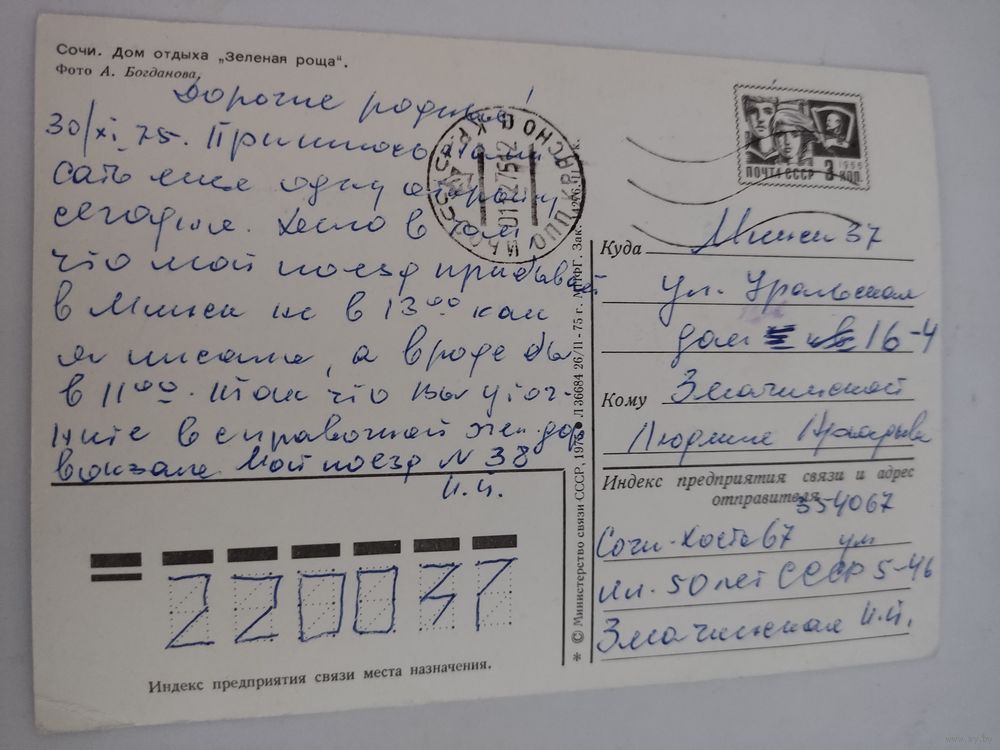 Сочи. Дом отдыха „Зеленая роща".
Фото А. Богданова.
Дорогие родные!
30/XI. 75. Пришлось пи
сать еще одну открытку
сегодня. Дело в том,
что мой поезд прибывает
в Минск не в 13 00 как
я писала, а вроде бы
в 11 00. Так что Вы уточ-
ните в справочной жел дор
вокзала. Мой поезд N 38
И.И.
ПОЧТА СССР 3 КОП.
1966
Куда Минск 37
ул. Уральская
дом 16-4
Кому Змачинской
Людмиле
Индекс предприятия связи и адрес
отправителя
354067
Сочи-Хоста 67 ул
им. 50 лет СССР 5-46
Змачинская И.И.
220037
Индекс предприятия связи места назначения.
* © Министерство связи СССР, 1975 • Л 36684 26/II-75 г. МПФГ. Зак.